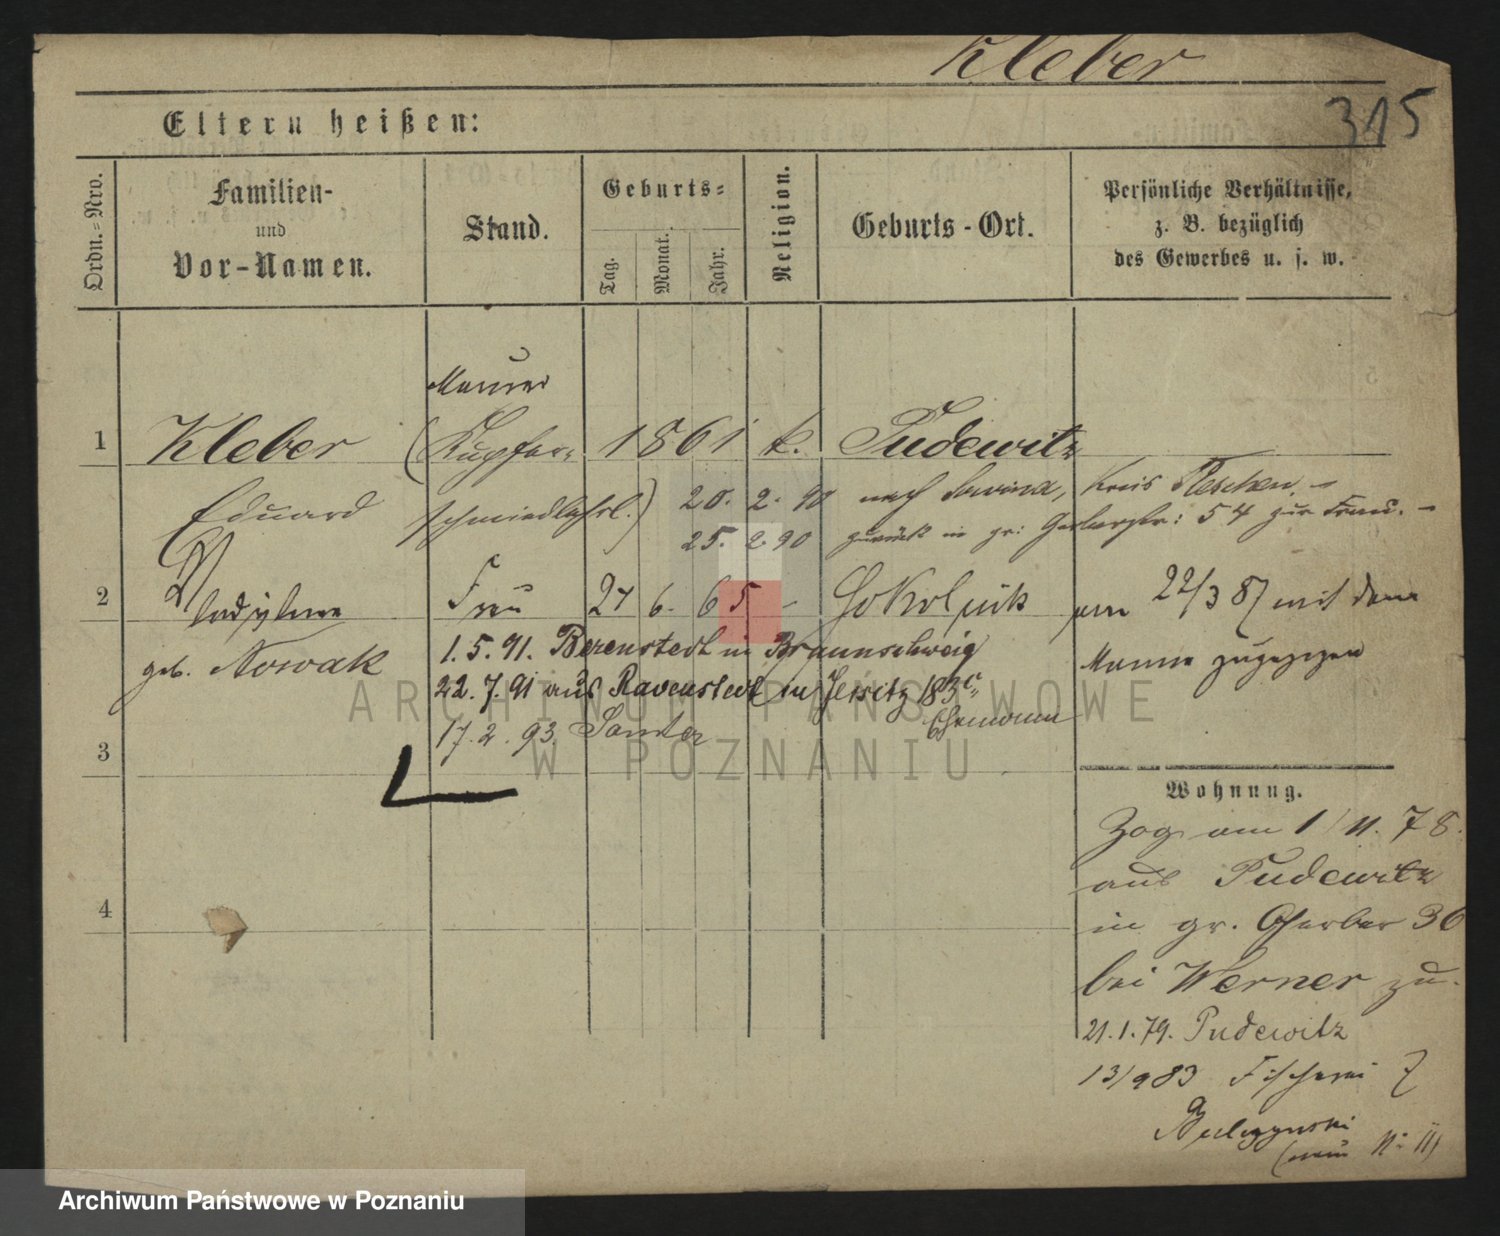 Kleber
315
Eltern heißen:
Ordn.-Nro.
Familien-
und
Vor-Namen.
Stand.
Geburts-
Tag.
Monat.
Jahr.
Religion.
Geburts-Ort.
Persönliche Verhältnisse,
z. B. bezüglich
des Gewerbes u. s. w.
Maurer
1 Kleber (Kupfer- 1861 k. Pudewitz
Eduard schmiedlehrl.) 20. 2. 90 nach Kreis Pleschen.
25. 2. 90 zurück in gr: Gerberstr: 54 zur Frau.
2 Wladyslawa Frau 27 6. 65 - am 22/3 87 mit dem
geb. Nowak 1. 5. 91. Berenstedt in Braunschweig Manne zugezogen
22. 7. 91 aus Ravenstedt in Jersitz 183c
Ehemann
17. 2. 93 Samter
3
4
Wohnung.
Zog am 1/11. 78.
aus Pudewitz
in gr. Gerber 36
bei Werner zu.
21. 1. 79. Pudewitz
13/9 83 Fischerei 7
(neu N: 11)
ARCHIWUM PAŃSTWOWE
W POZNANIU
Archiwum Państwowe w Poznaniu